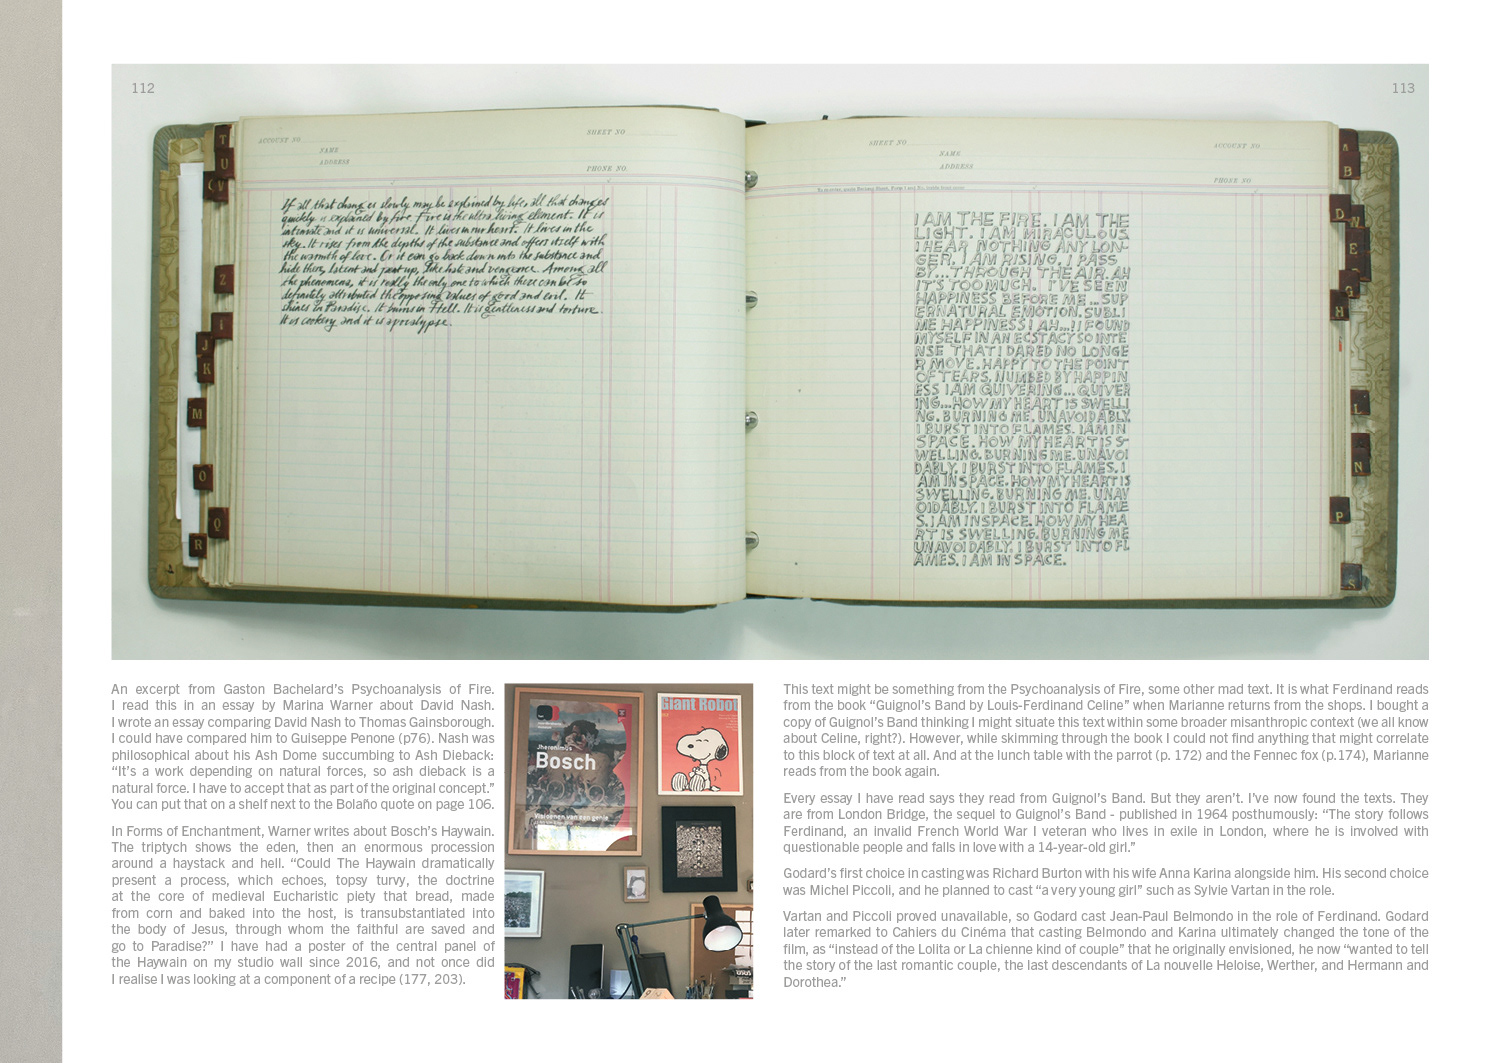 112
113
ACCOUNT NO.
SHEET NO
NAME
ADDRESS
PHONE NO.
If all that changes slowly may be explained by life, all that changes
quickly is explained by fire. Fire is the ultra-living element. It is
intimate and it is universal. It lives in our heart. It lives in the
sky. It rises from the depths of the substance and offers itself with
the warmth of love. Or it can go back down into the substance and
hide there, latent and pent-up, like hate and vengeance. Among all
the phenomena, it is really the only one to which there can be so
definitely attributed the opposing values of good and evil. It
shines in Paradise. It burns in Hell. It is gentleness and torture.
It is cookery and it is apocalypse.
T
U
V
Z
I
J
K
M
O
Q
R
SHEET NO
ACCOUNT NO.
NAME
ADDRESS
PHONE NO
I AM THE FIRE. I AM THE
LIGHT. I AM MIRACULOUS
I HEAR NOTHING ANY LON-
GER. I AM RISING. I PASS
BY...THROUGH THE AIR. AH
IT'S TOO MUCH. I'VE SEEN
HAPPINESS BEFORE ME...SUP
ERNATURAL EMOTION. SUBLI
ME HAPPINESS! AH...! I FOUND
MYSELF IN AN ECSTACY SO INTE
NSE THAT I DARED NO LONGE
R MOVE. HAPPY TO THE POINT
OF TEARS. NUMBED BY HAPPIN
ESS I AM QUIVERING...QUIVER
ING...HOW MY HEART IS SWELLI
NG. BURNING ME. UNAVOIDABLY.
I BURST INTO FLAMES. I AM IN
SPACE. HOW MY HEART IS S-
WELLING. BURNING ME. UNAVOI
DABLY. I BURST INTO FLAMES. I
AM IN SPACE. HOW MY HEART IS
SWELLING. BURNING ME. UNAV
OIDABLY. I BURST INTO FLAME
S. I AM IN SPACE. HOW MY HEA
RT IS SWELLING. BURNING ME
UNAVOIDABLY. I BURST INTO FL
AMES. I AM IN SPACE.
A
B
D
E
G
H
L
N
P
S
An excerpt from Gaston Bachelard's Psychoanalysis of Fire.
I read this in an essay by Marina Warner about David Nash.
I wrote an essay comparing David Nash to Thomas Gainsborough.
I could have compared him to Guiseppe Penone (p76). Nash was
philosophical about his Ash Dome succumbing to Ash Dieback:
“It's a work depending on natural forces, so ash dieback is a
natural force. I have to accept that as part of the original concept.”
You can put that on a shelf next to the Bolaño quote on page 106.
In Forms of Enchantment, Warner writes about Bosch's Haywain.
The triptych shows the eden, then an enormous procession
around a haystack and hell. “Could The Haywain dramatically
present a process, which echoes, topsy turvy, the doctrine
at the core of medieval Eucharistic piety that bread, made
from corn and baked into the host, is transubstantiated into
the body of Jesus, through whom the faithful are saved and
go to Paradise?” I have had a poster of the central panel of
the Haywain on my studio wall since 2016, and not once did
I realise I was looking at a component of a recipe (177, 203).
Jheronimus
Bosch
Visioenen van een genie
Giant Robot
This text might be something from the Psychoanalysis of Fire, some other mad text. It is what Ferdinand reads
from the book “Guignol's Band by Louis-Ferdinand Celine” when Marianne returns from the shops. I bought a
copy of Guignol's Band thinking I might situate this text within some broader misanthropic context (we all know
about Celine, right?). However, while skimming through the book I could not find anything that might correlate
to this block of text at all. And at the lunch table with the parrot (p. 172) and the Fennec fox (p.174), Marianne
reads from the book again.
Every essay I have read says they read from Guignol's Band. But they aren't. I've now found the texts. They
are from London Bridge, the sequel to Guignol's Band - published in 1964 posthumously: “The story follows
Ferdinand, an invalid French World War I veteran who lives in exile in London, where he is involved with
questionable people and falls in love with a 14-year-old girl.”
Godard's first choice in casting was Richard Burton with his wife Anna Karina alongside him. His second choice
was Michel Piccoli, and he planned to cast “a very young girl” such as Sylvie Vartan in the role.
Vartan and Piccoli proved unavailable, so Godard cast Jean-Paul Belmondo in the role of Ferdinand. Godard
later remarked to Cahiers du Cinéma that casting Belmondo and Karina ultimately changed the tone of the
film, as “instead of the Lolita or La chienne kind of couple” that he originally envisioned, he now “wanted to tell
the story of the last romantic couple, the last descendants of La nouvelle Heloise, Werther, and Hermann and
Dorothea.”